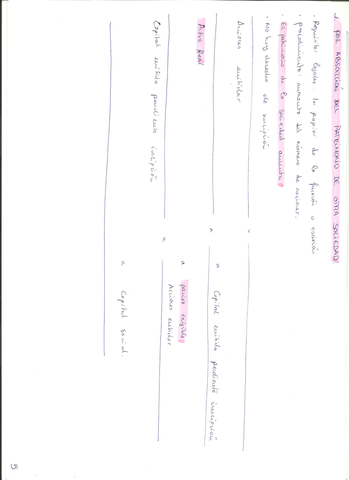 J. POR ABSORCIÓN DEL PATRIMONIO DE OTRA SOCIEDAD
· Requisitos legales los propios de la fusión o escisión
· procedimiento: aumento del número de acciones.
· El patrimonio de la sociedad aumenta
· No hay derecho de suscripción
Acciones emitidas
a Capital emitido pendiente inscripción
Activo Real
a pasivo exigible
a Acciones emitidas
Capital emitido pendiente inscripción
a Capital social
5